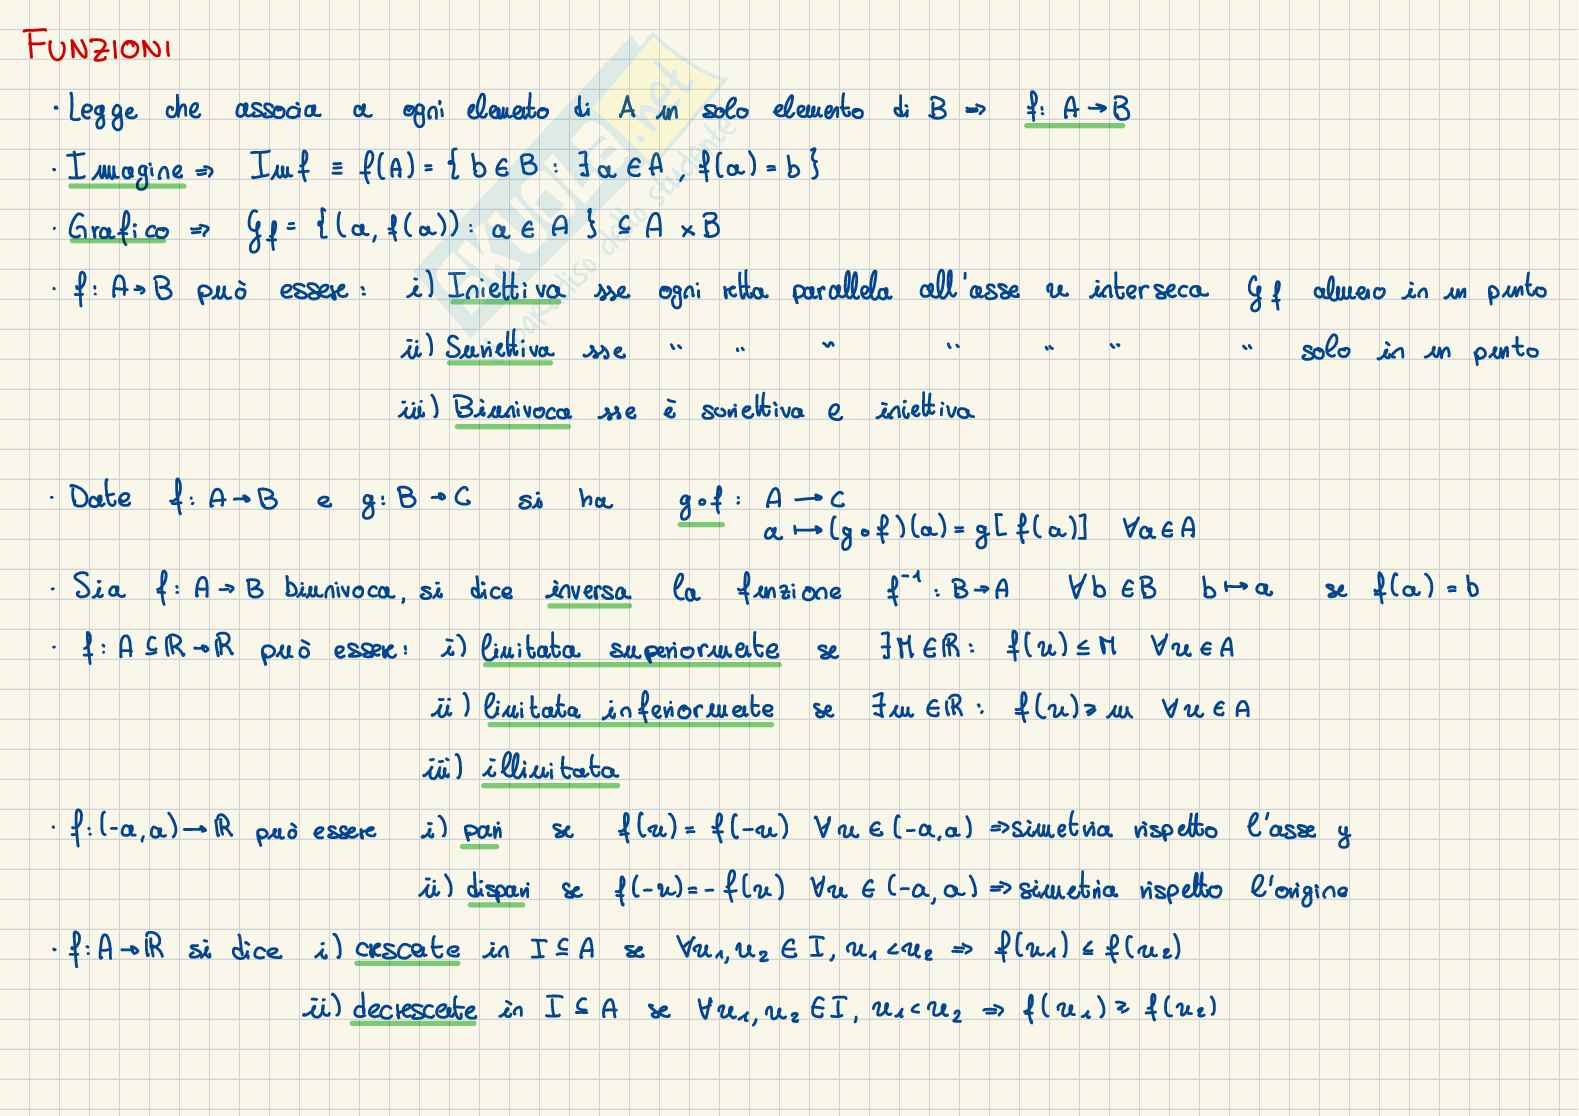 FUNZIONI
· Legge che associa a ogni elemento di A un solo elemento di B ⇒ f: A → B
· Immagine ⇒ Im f ≡ f(A) = { b ∈ B : ∃ a ∈ A , f(a) = b }
· Grafico ⇒ Gf = { (a, f(a)) : a ∈ A } ⊆ A × B
· f: A → B può essere : i) Iniettiva sse ogni retta parallela all'asse x interseca Gf almeno in un punto
ii) Suriettiva sse " " " " " " " solo in un punto
iii) Biunivoca sse è suriettiva e iniettiva
· Date f: A → B e g: B → C si ha g∘f : A → C
a ↦ (g∘f)(a) = g[f(a)] ∀a ∈ A
· Sia f: A → B biunivoca, si dice inversa la funzione f⁻¹ : B → A ∀b ∈ B b ↦ a se f(a) = b
· f: A ⊆ ℝ → ℝ può essere : i) limitata superiormente se ∃M ∈ ℝ : f(x) ≤ M ∀x ∈ A
ii) limitata inferiormente se ∃m ∈ ℝ : f(x) ≥ m ∀x ∈ A
iii) illimitata
· f: (-a, a) → ℝ può essere i) pari se f(x) = f(-x) ∀x ∈ (-a, a) ⇒ simetria rispetto l'asse y
ii) dispari se f(-x) = - f(x) ∀x ∈ (-a, a) ⇒ simetria rispetto l'origine
· f: A → ℝ si dice i) crescente in I ⊆ A se ∀x₁, x₂ ∈ I, x₁ < x₂ ⇒ f(x₁) ≤ f(x₂)
ii) decrescente in I ⊆ A se ∀x₁, x₂ ∈ I, x₁ < x₂ ⇒ f(x₁) ≥ f(x₂)
SKUOLA.net
paradiso dello studente